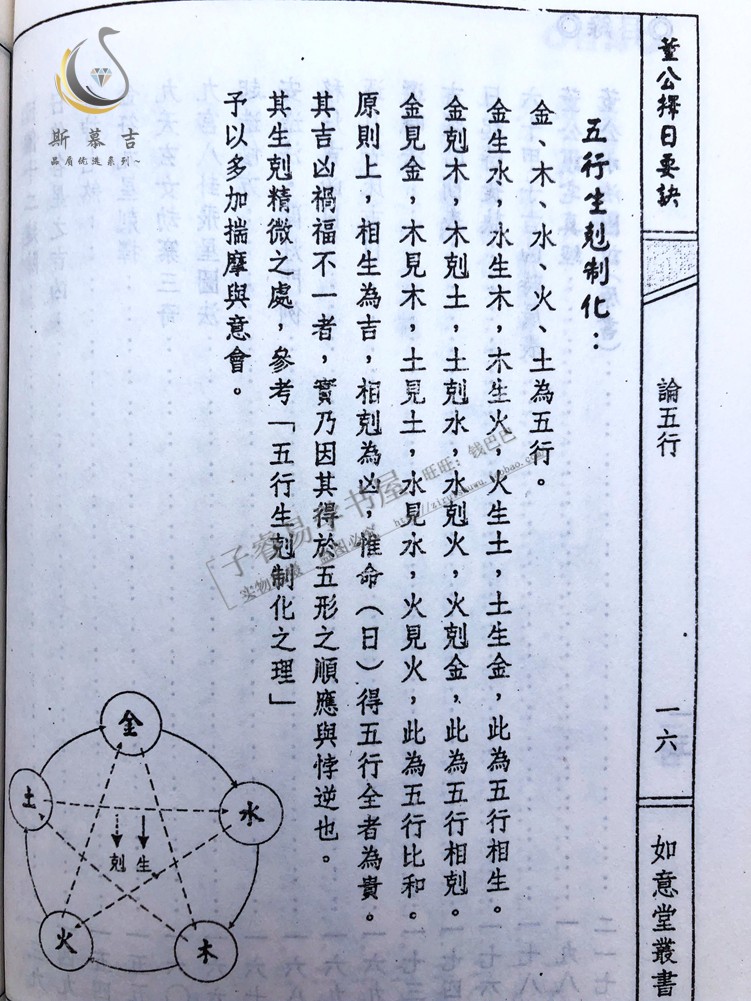 董公擇日要訣
論五行
一六
如意堂叢書
五行生剋制化：
金、木、水、火、土為五行。
金生水，水生木，木生火，火生土，土生金，此為五行相生。
金剋木，木剋土，土剋水，水剋火，火剋金，此為五行相剋。
金見金，木見木，土見土，水見水，火見火，此為五行比和。
原則上，相生為吉，相剋為凶，惟命（日）得五行全者為貴。
其吉凶禍福不一者，實乃因其得於五形之順應與悖逆也。
其生剋精微之處，參考「五行生剋制化之理」
予以多加揣摩與意會。
金
水
木
火
土
生
剋
斯慕吉
品質優選系列~
子睿易学书屋
旺旺：钱巴巴
实物拍摄 盗图必究